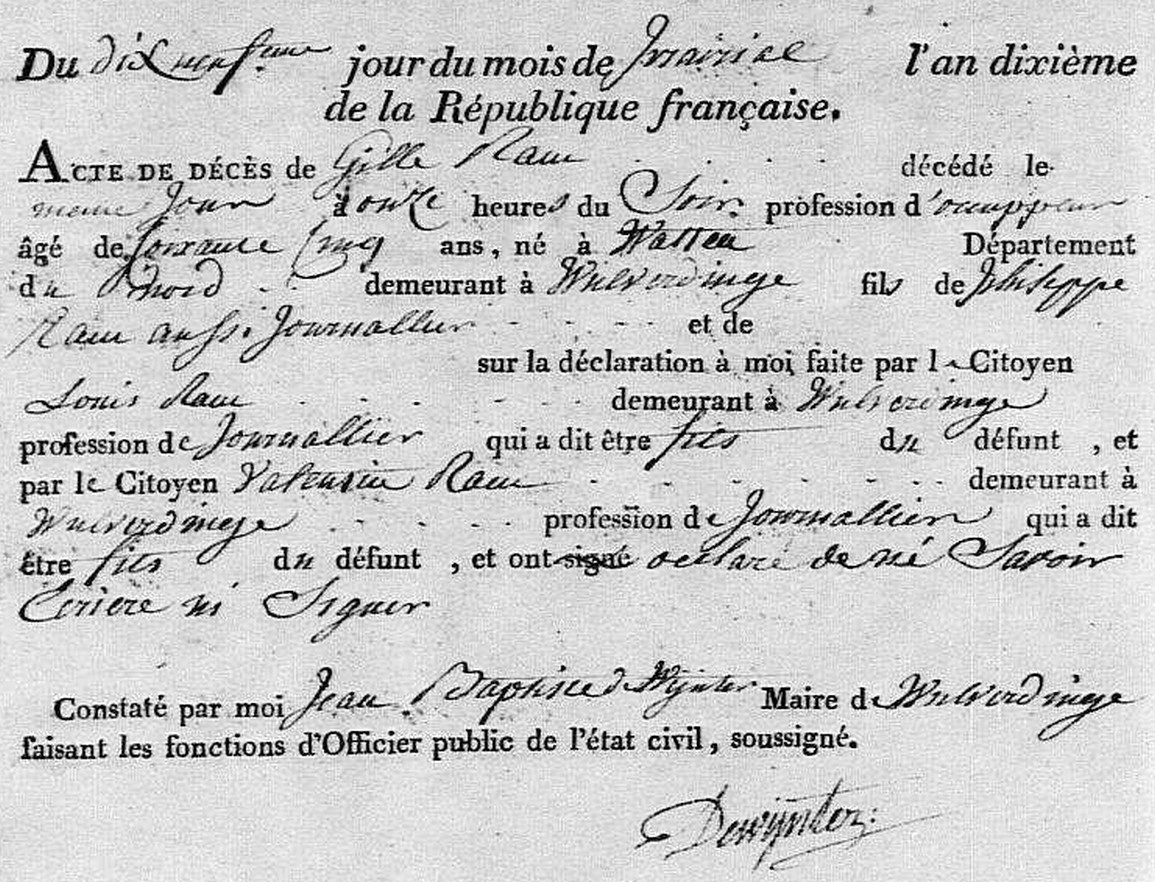 Du dix neufieme jour du mois de prairial l'an dixième
de la République française.
ACTE DE DÉCÈS de Gille Ram décédé le
meme Jour à onze heures du Soir profession d'occuppeur
âgé de soixante Cinq ans, né à Watten Département
du Nord demeurant à Wulverdinge fils de philippe
Ram aussi Journallier et de
sur la déclaration à moi faite par le Citoyen
Louis Ram demeurant à Wulverdinge
profession de Journallier qui a dit être fils du défunt , et
par le Citoyen Valentin Ram demeurant à
Wulverdinge profession de Journallier qui a dit
être fils du défunt , et ont signé declare de né Savoir
Ecriere ni Signer
Constaté par moi Jean Baptiste deWynter Maire de Wulverdinge
faisant les fonctions d'Officier public de l'état civil, soussigné.
Dewynter